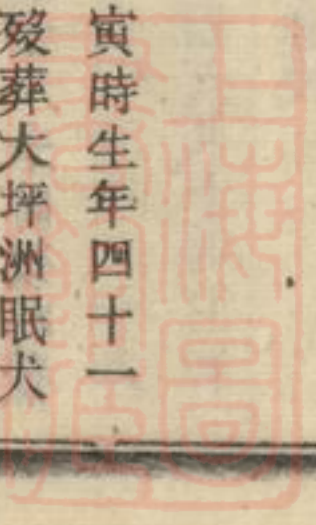 寅時生年四十一
歿葬大坪洲眠犬
上海圖